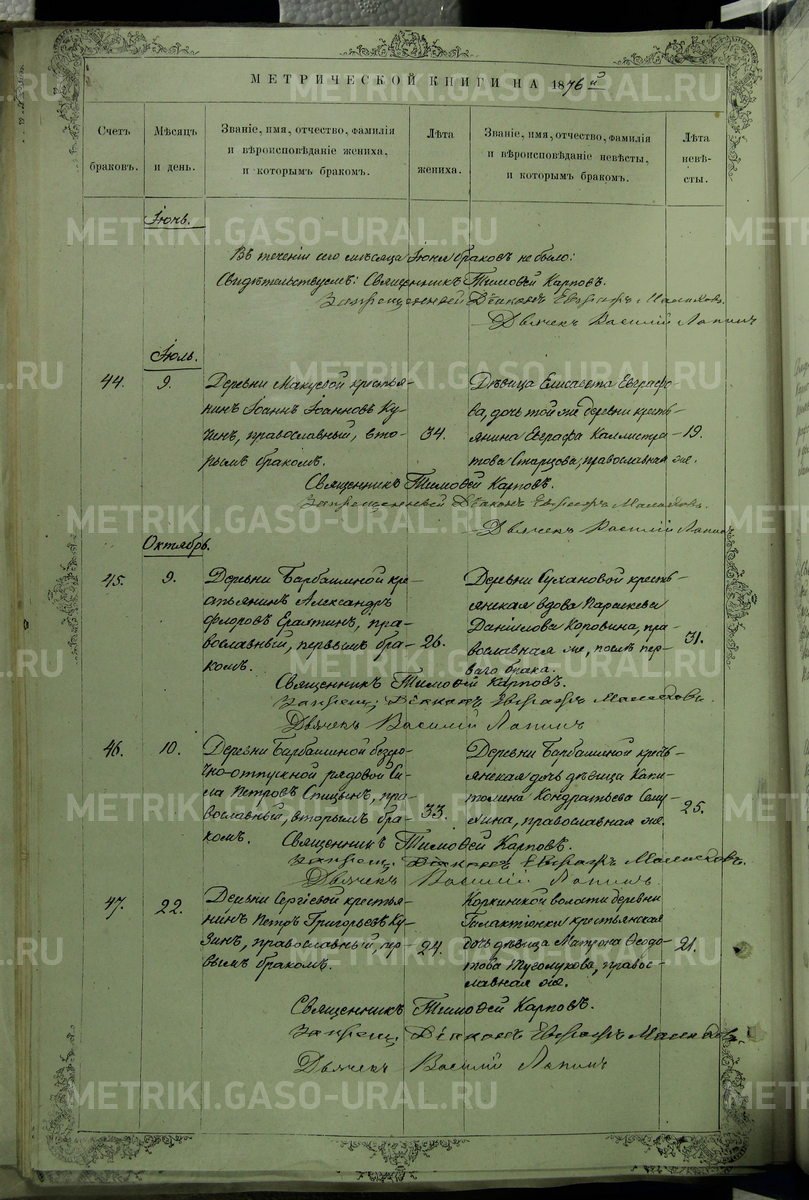 МЕТРИЧЕСКОЙ КНИГИ НА 1876й
Счетъ браковъ.
Мѣсяцъ и день.
Званіе, имя, отчество, фамилія
и вѣроисповѣданіе жениха,
и которымъ бракомъ.
Лѣта жениха.
Званіе, имя, отчество, фамилія
и вѣроисповѣданіе невѣсты,
и которымъ бракомъ.
Лѣта невѣ-
сты.
Іюнь.
Въ теченіи сего мѣсяца Іюня браковъ не было:
Свидѣтельствуемъ: Священникъ Тимоѳей Карповъ.
Запрещенный Діаконъ Евграфъ
Дьячекъ Василій Лапинъ
Іюль.
44. 9.
Деревни крестья-
нинъ Іоаннъ Іоанновъ Ку-
православный, вто-
рымъ бракомъ.
34.
Дѣвица Елисавета Еврафо-
ва, дочь той же деревни кресть-
янина Еврафа Каллистра-
това Старцова, православная же.
19.
Священникъ Тимоѳей Карповъ.
Запрещенный Діаконъ Евграфъ
Дьячекъ Василій Лапинъ
Октябрь.
45. 9.
Деревни Барбашиной кре-
стьянинъ Александръ
Флоровъ пра-
вославный, первымъ бра-
комъ.
26.
Деревни Сухановой кресть-
янская вдова Параскева
Даніилова Коровина, пра-
вославная же, послѣ пер-
ваго брака.
31.
Священникъ Тимоѳей Карповъ.
Запрещ. Діаконъ Евграфъ
Дьячекъ Василій Лапинъ
46. 10.
Деревни Барбашиной безсро-
чно-отпускной рядовой Си-
ла Петровъ Спицынъ, пра-
вославный, вторымъ бра-
комъ.
33.
Деревни Барбашиной кресть-
янская дочь дѣвица Капи-
толина Кондратьева
православная же.
25.
Священникъ Тимоѳей Карповъ.
Запрещ. Діаконъ Евграфъ
Дьячекъ Василій Лапинъ.
47. 22.
Деревни Сергіевой крестья-
нинъ Петръ Григорьевъ Ку-
зинъ, православный, пер-
вымъ бракомъ.
24.
Коркинской волости деревни
Галактіонки крестьянская
дочь дѣвица Матрона Ѳеодо-
това Туголукова, правос-
лавная же.
21.
Священникъ Тимоѳей Карповъ.
Запрещ. Діаконъ Евграфъ
Дьячекъ Василій Лапинъ
METRIKI.GASO-URAL.RU